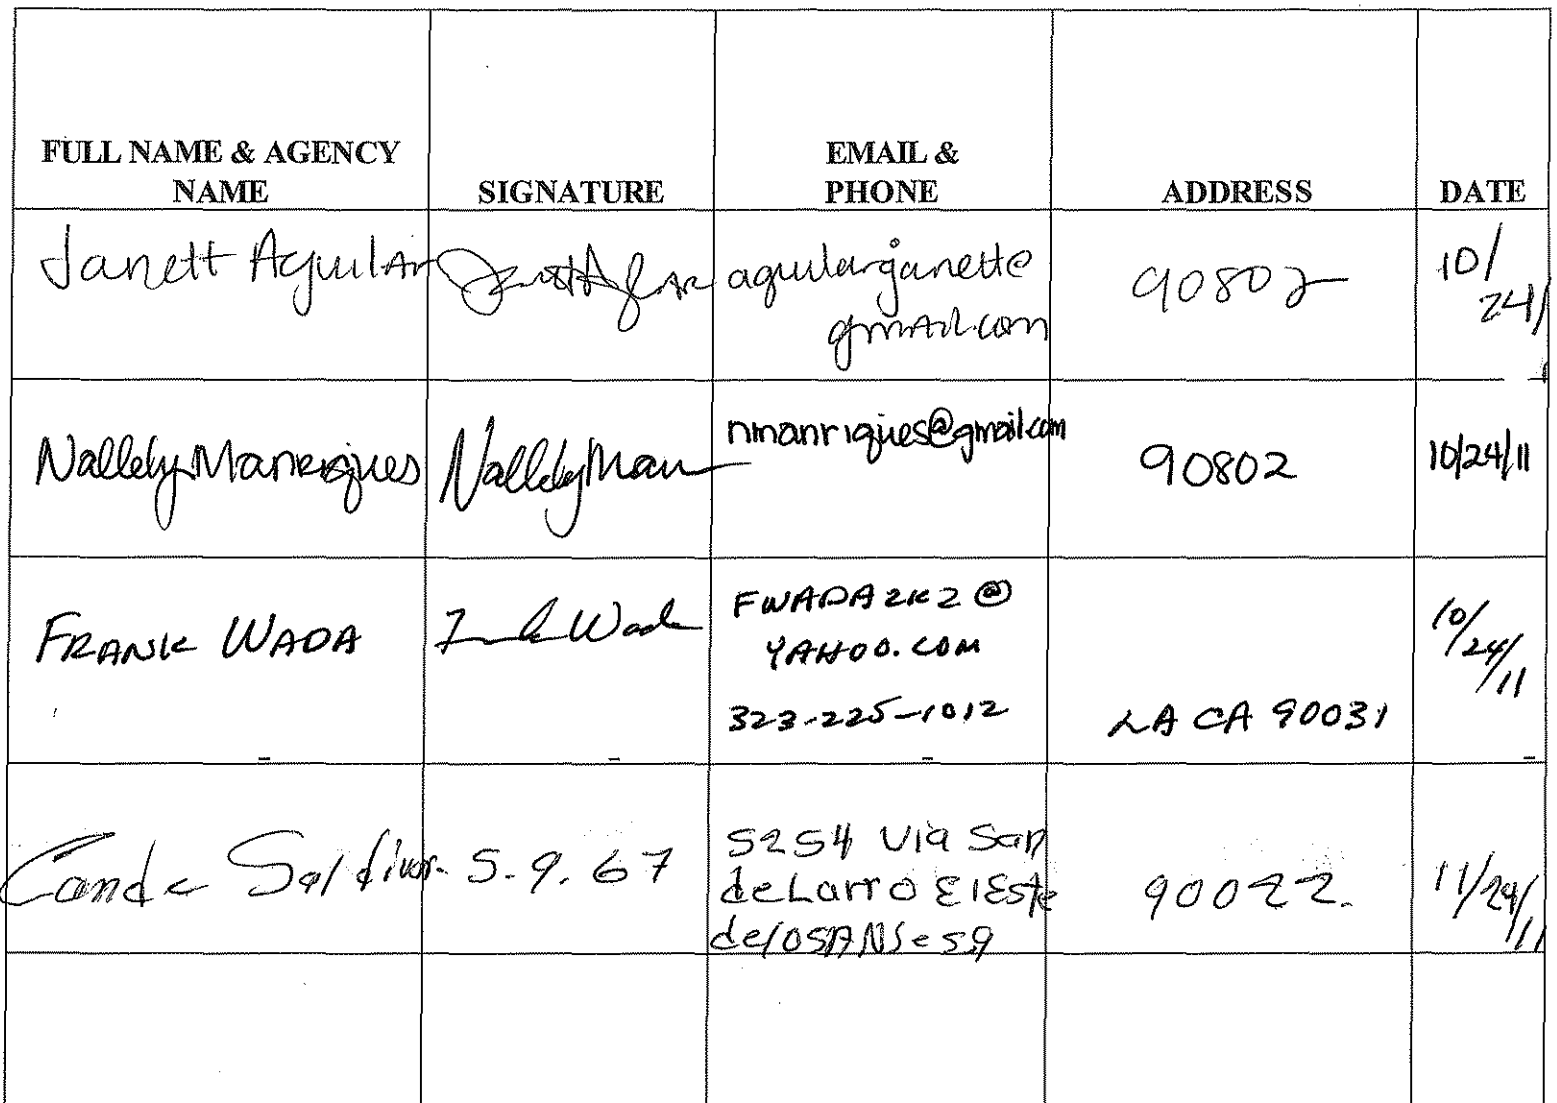 FULL NAME & AGENCY
NAME
SIGNATURE
EMAIL &
PHONE
ADDRESS
DATE
Janett Aguilar
aguilarjanette
gmail.com
90802
10/
24/
Nallely Manriques
Nallely Man
nmanriques@gmail.com
90802
10/24/11
FRANK WADA
Frank Wada
FWADA2K2@
YAHOO.COM
323-225-1012
LA CA 90031
10/24/11
Cande Saldivar
5.9.67
5254 Via San
delarro ElEste
90022.
11/29/11